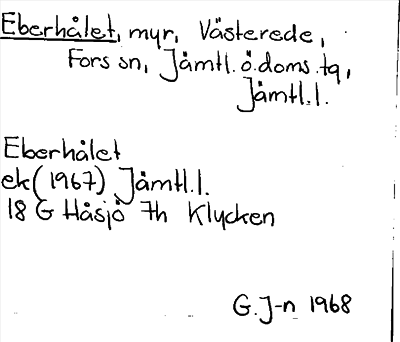 Eberhålet, myr, Västerede,
Fors sn, Jämtl. ö. doms. tq,
Jämtl. l.
Eberhålet
ek (1967) Jämtl. l.
18 G Håsjö 7h Klycken
G. J-n 1968